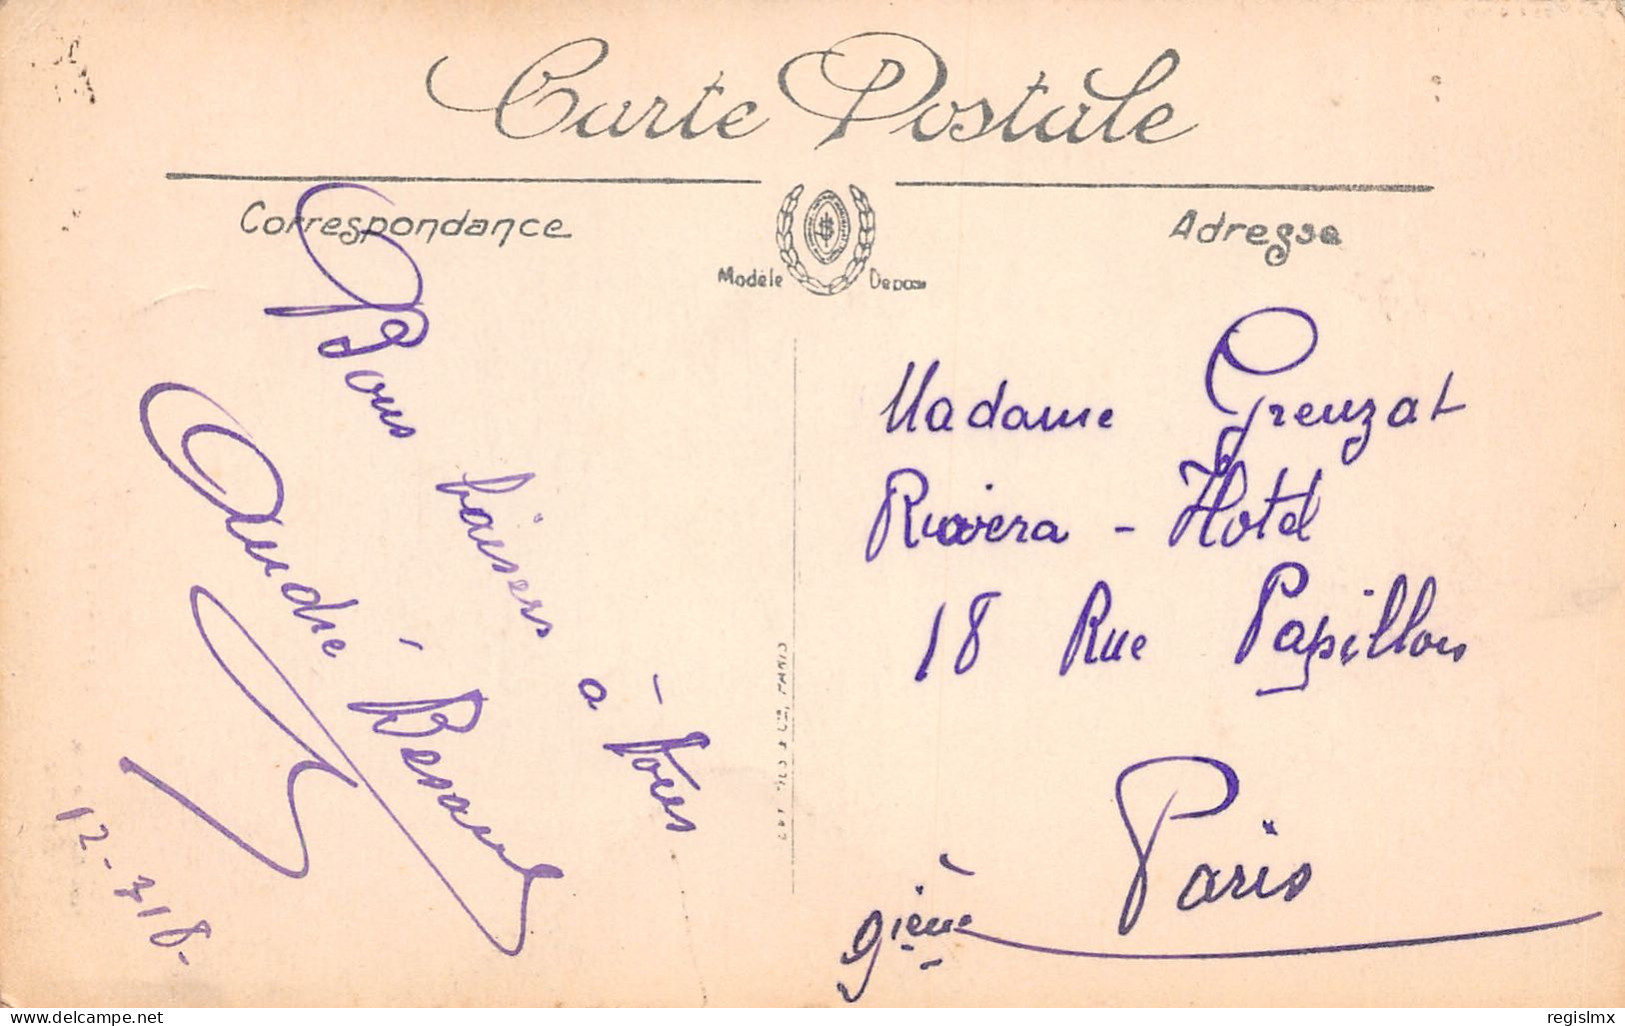 Carte Postale
Correspondance
Adresse
Modèle Déposé
Bons baisers à tous
André Besault
12-7-18-
Madame Greuzat
Riviera - Hotel
18 Rue Papillon
Paris
9ième
www.delcampe.net
regislmx